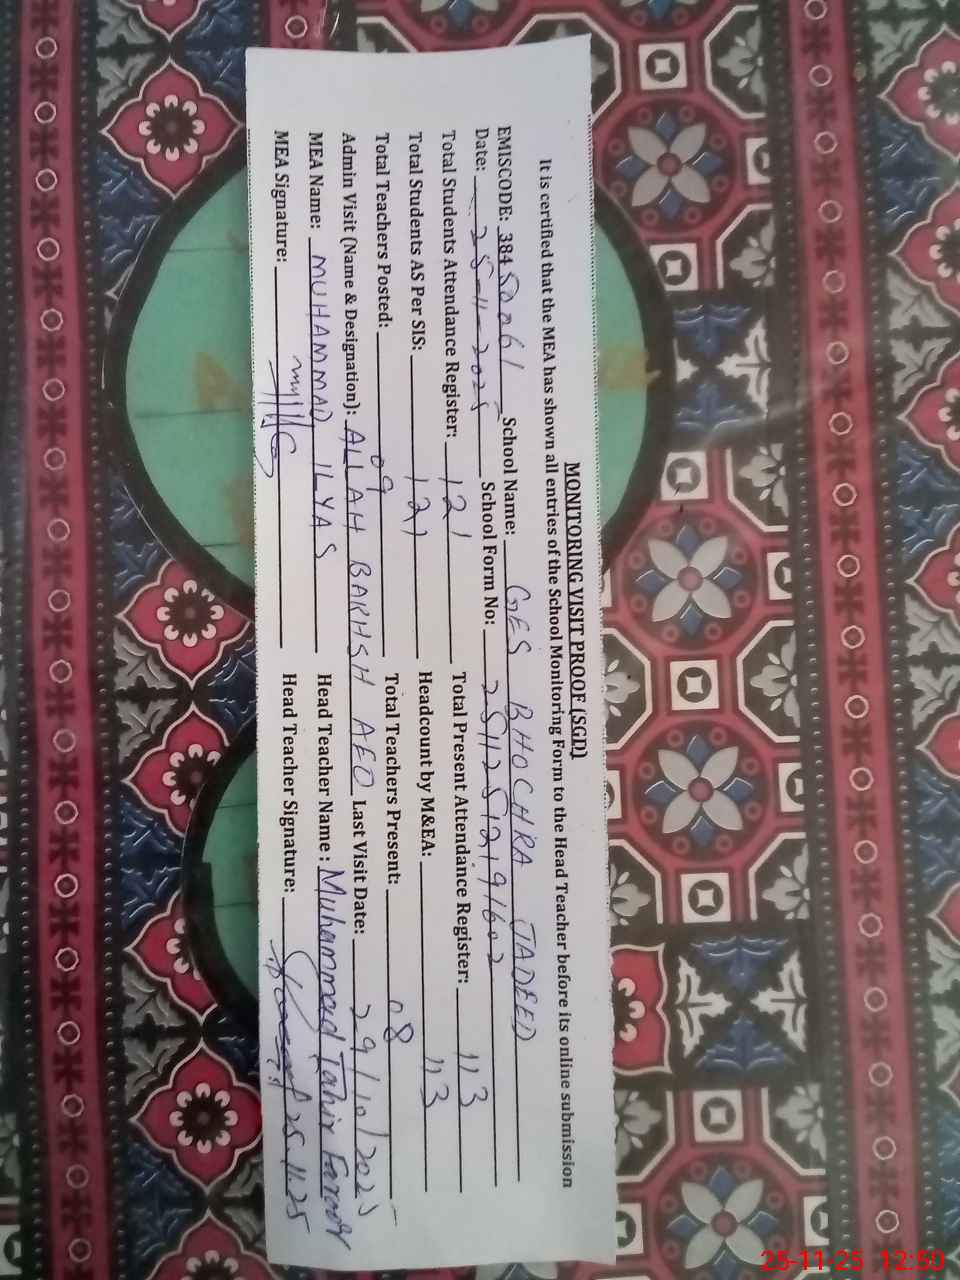 MONITORING VISIT PROOF (SGD)
It is certified that the MEA has shown all entries of the School Monitoring Form to the Head Teacher before its online submission
EMISCODE: 38450061 School Name: GES BHOCHRA JADEED
Date: 25-11-2025 School Form No: 25112512191602
Total Students Attendance Register: 121 Total Present Attendance Register: 113
Total Students AS Per SIS: 121 Headcount by M&EA: 113
Total Teachers Posted: 09 Total Teachers Present: 08
Admin Visit (Name & Designation): ALLAH BAKHSH AEO Last Visit Date: 29/10/2025
MEA Name: MUHAMMAD ILYAS Head Teacher Name: Muhammad Tahir Farooq
MEA Signature: Head Teacher Signature: 25.11.25
25-11-25 12:50